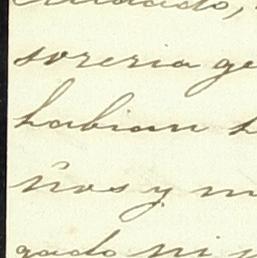 soreria ge
habian
ños y m
gado ni